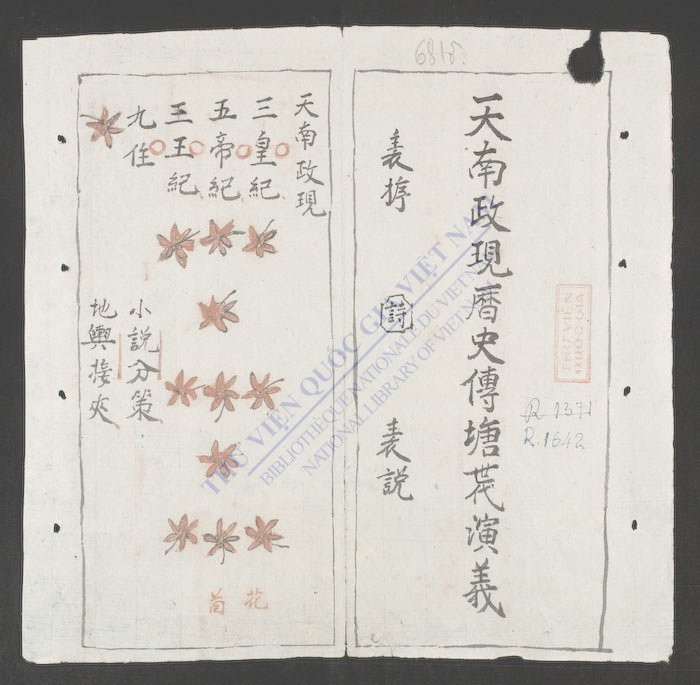 天南政現暦史傳塘花演義
表
詩
表説
天南政現
三皇紀
五帝紀
三王紀
九住
小説分策
地輿接夾
花
THƯ VIỆN
QUỐC GIA
R 1371
R.1642
THƯ VIỆN QUỐC GIA VIỆT NAM
BIBLIOTHÈQUE NATIONALE DU VIETNAM
NATIONAL LIBRARY OF VIETNAM